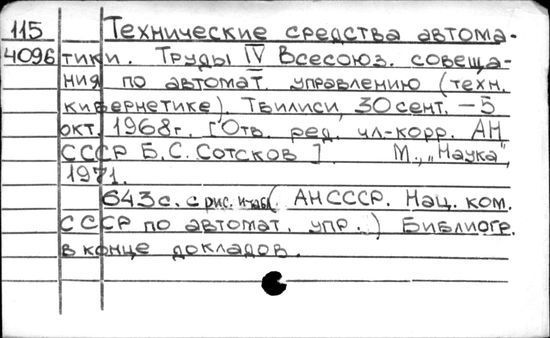 115 Технические средства автома-
4096 тики. Труды IV Всесоюз. совеща-
ния по автомат. управлению (техн.
кибернетике). Тбилиси, 30 сент. – 5
окт. 1968г. [Отв. ред. чл-корр. АН
СССР Б.С. Сотсков] М., „Наука",
1971.
643 с. с рис. и табл. (АН СССР. Нац. ком.
СССР по автомат. упр.) Библиогр.
в конце докладов.